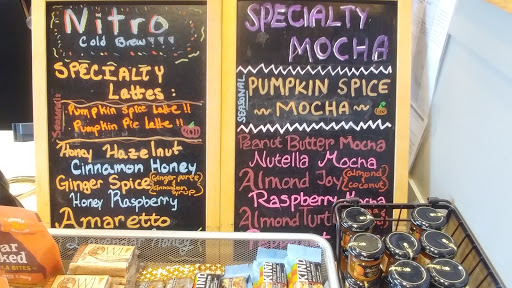 Nitro
Cold Brew
SPECIALTY
Lattes:
SEASONAL
Pumpkin Spice Latte!!
Pumpkin Pie Latte!!
Honey Hazelnut
Cinnamon Honey
Ginger Spice (Ginger puree
cinnamon
syrup)
Honey Raspberry
Amaretto
Lavender Honey
SPECIALTY
MOCHA
SEASONAL
PUMPKIN SPICE
~MOCHA~
Peanut Butter Mocha
Nutella Mocha
Almond Joy (almond
coconut)
Raspberry Mocha
Almond Turtle
KIND